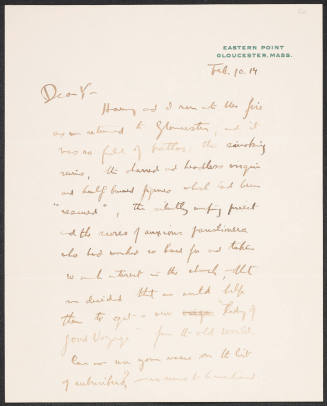 EASTERN POINT
GLOUCESTER, MASS.
Feb. 10. 14
Dear Y—
Harry and I were at the fire
as we returned to Gloucester, and it
was no field of battle. The smoking
ruins, the charred and headless virgin
and half burned figures which had been
"rescued", the silently weeping priest
and the scores of anxious parishioners
who had worked so hard for and taken
so much interest in the church, that
we decided that we would help
them to get a new "Lady of
Good Voyage" from the old world.
Can we use your name on the list
of subscribers?